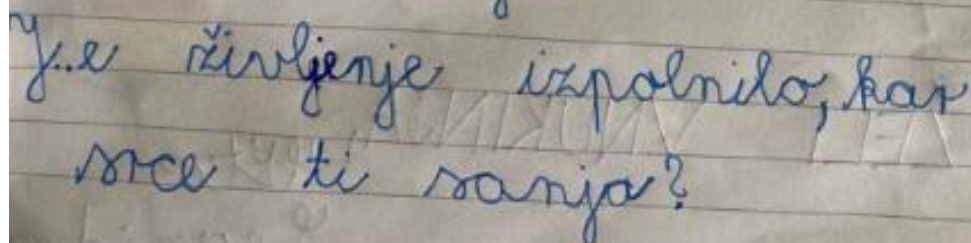 J..e življenje izpolnilo, kar
srce ti sanja?